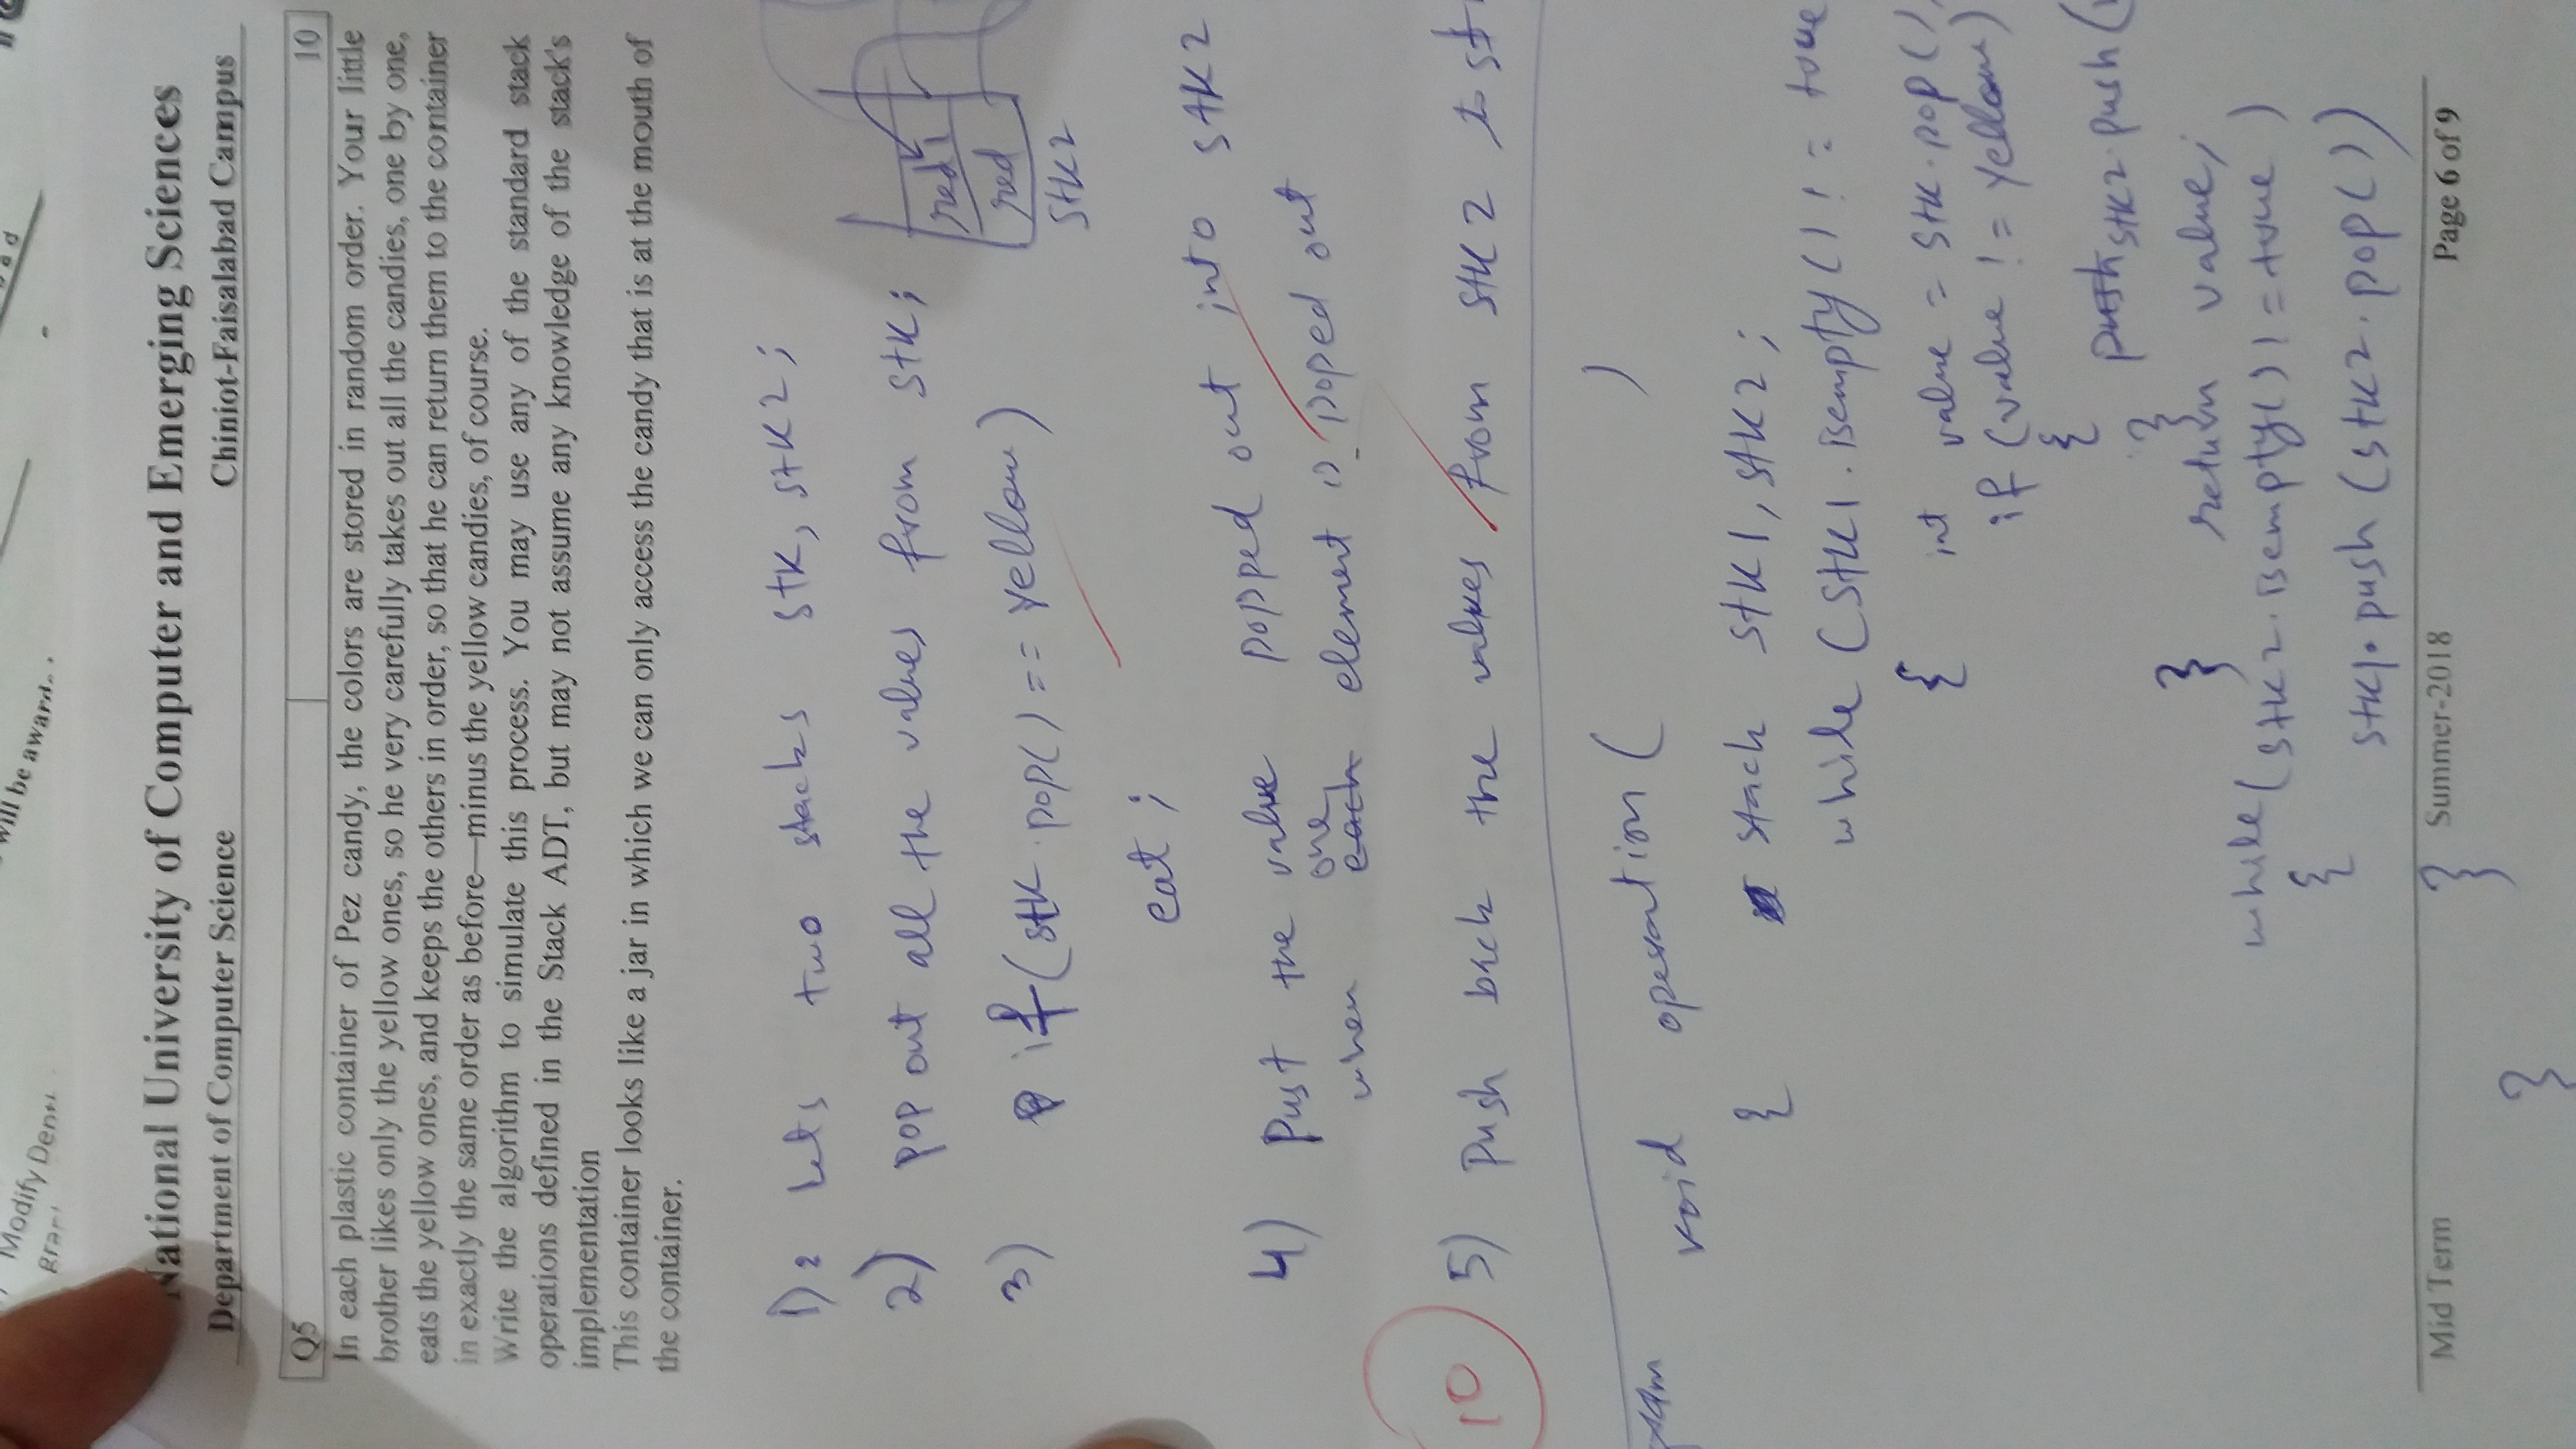 Modify
will be award
National University of Computer and Emerging Sciences
Department of Computer Science Chiniot-Faisalabad Campus
Q5 10
In each plastic container of Pez candy, the colors are stored in random order. Your little
brother likes only the yellow ones, so he very carefully takes out all the candies, one by one,
eats the yellow ones, and keeps the others in order, so that he can return them to the container
in exactly the same order as before—minus the yellow candies, of course.
Write the algorithm to simulate this process. You may use any of the standard stack
operations defined in the Stack ADT, but may not assume any knowledge of the stack's
implementation
This container looks like a jar in which we can only access the candy that is at the mouth of
the container.
1) Lets two stacks stk, stk2;
2) pop out all the values from stk;
3) if(stk.pop() == yellow)
eat;
red1
red
stk2
4) Pust the value popped out into stk2
when one each element is poped out
10
5) Push back the values from stk2 to st
void operation( )
{ stack stk1, stk2;
while (stk1.isempty() != true
{ int value = stk.pop()
if (value != yellow)
{
push stk2.push(
}
} return value;
while(stk2.isempty() != true)
{
stk1.push(stk2.pop())
Mid Term Summer-2018 Page 6 of 9
}
}